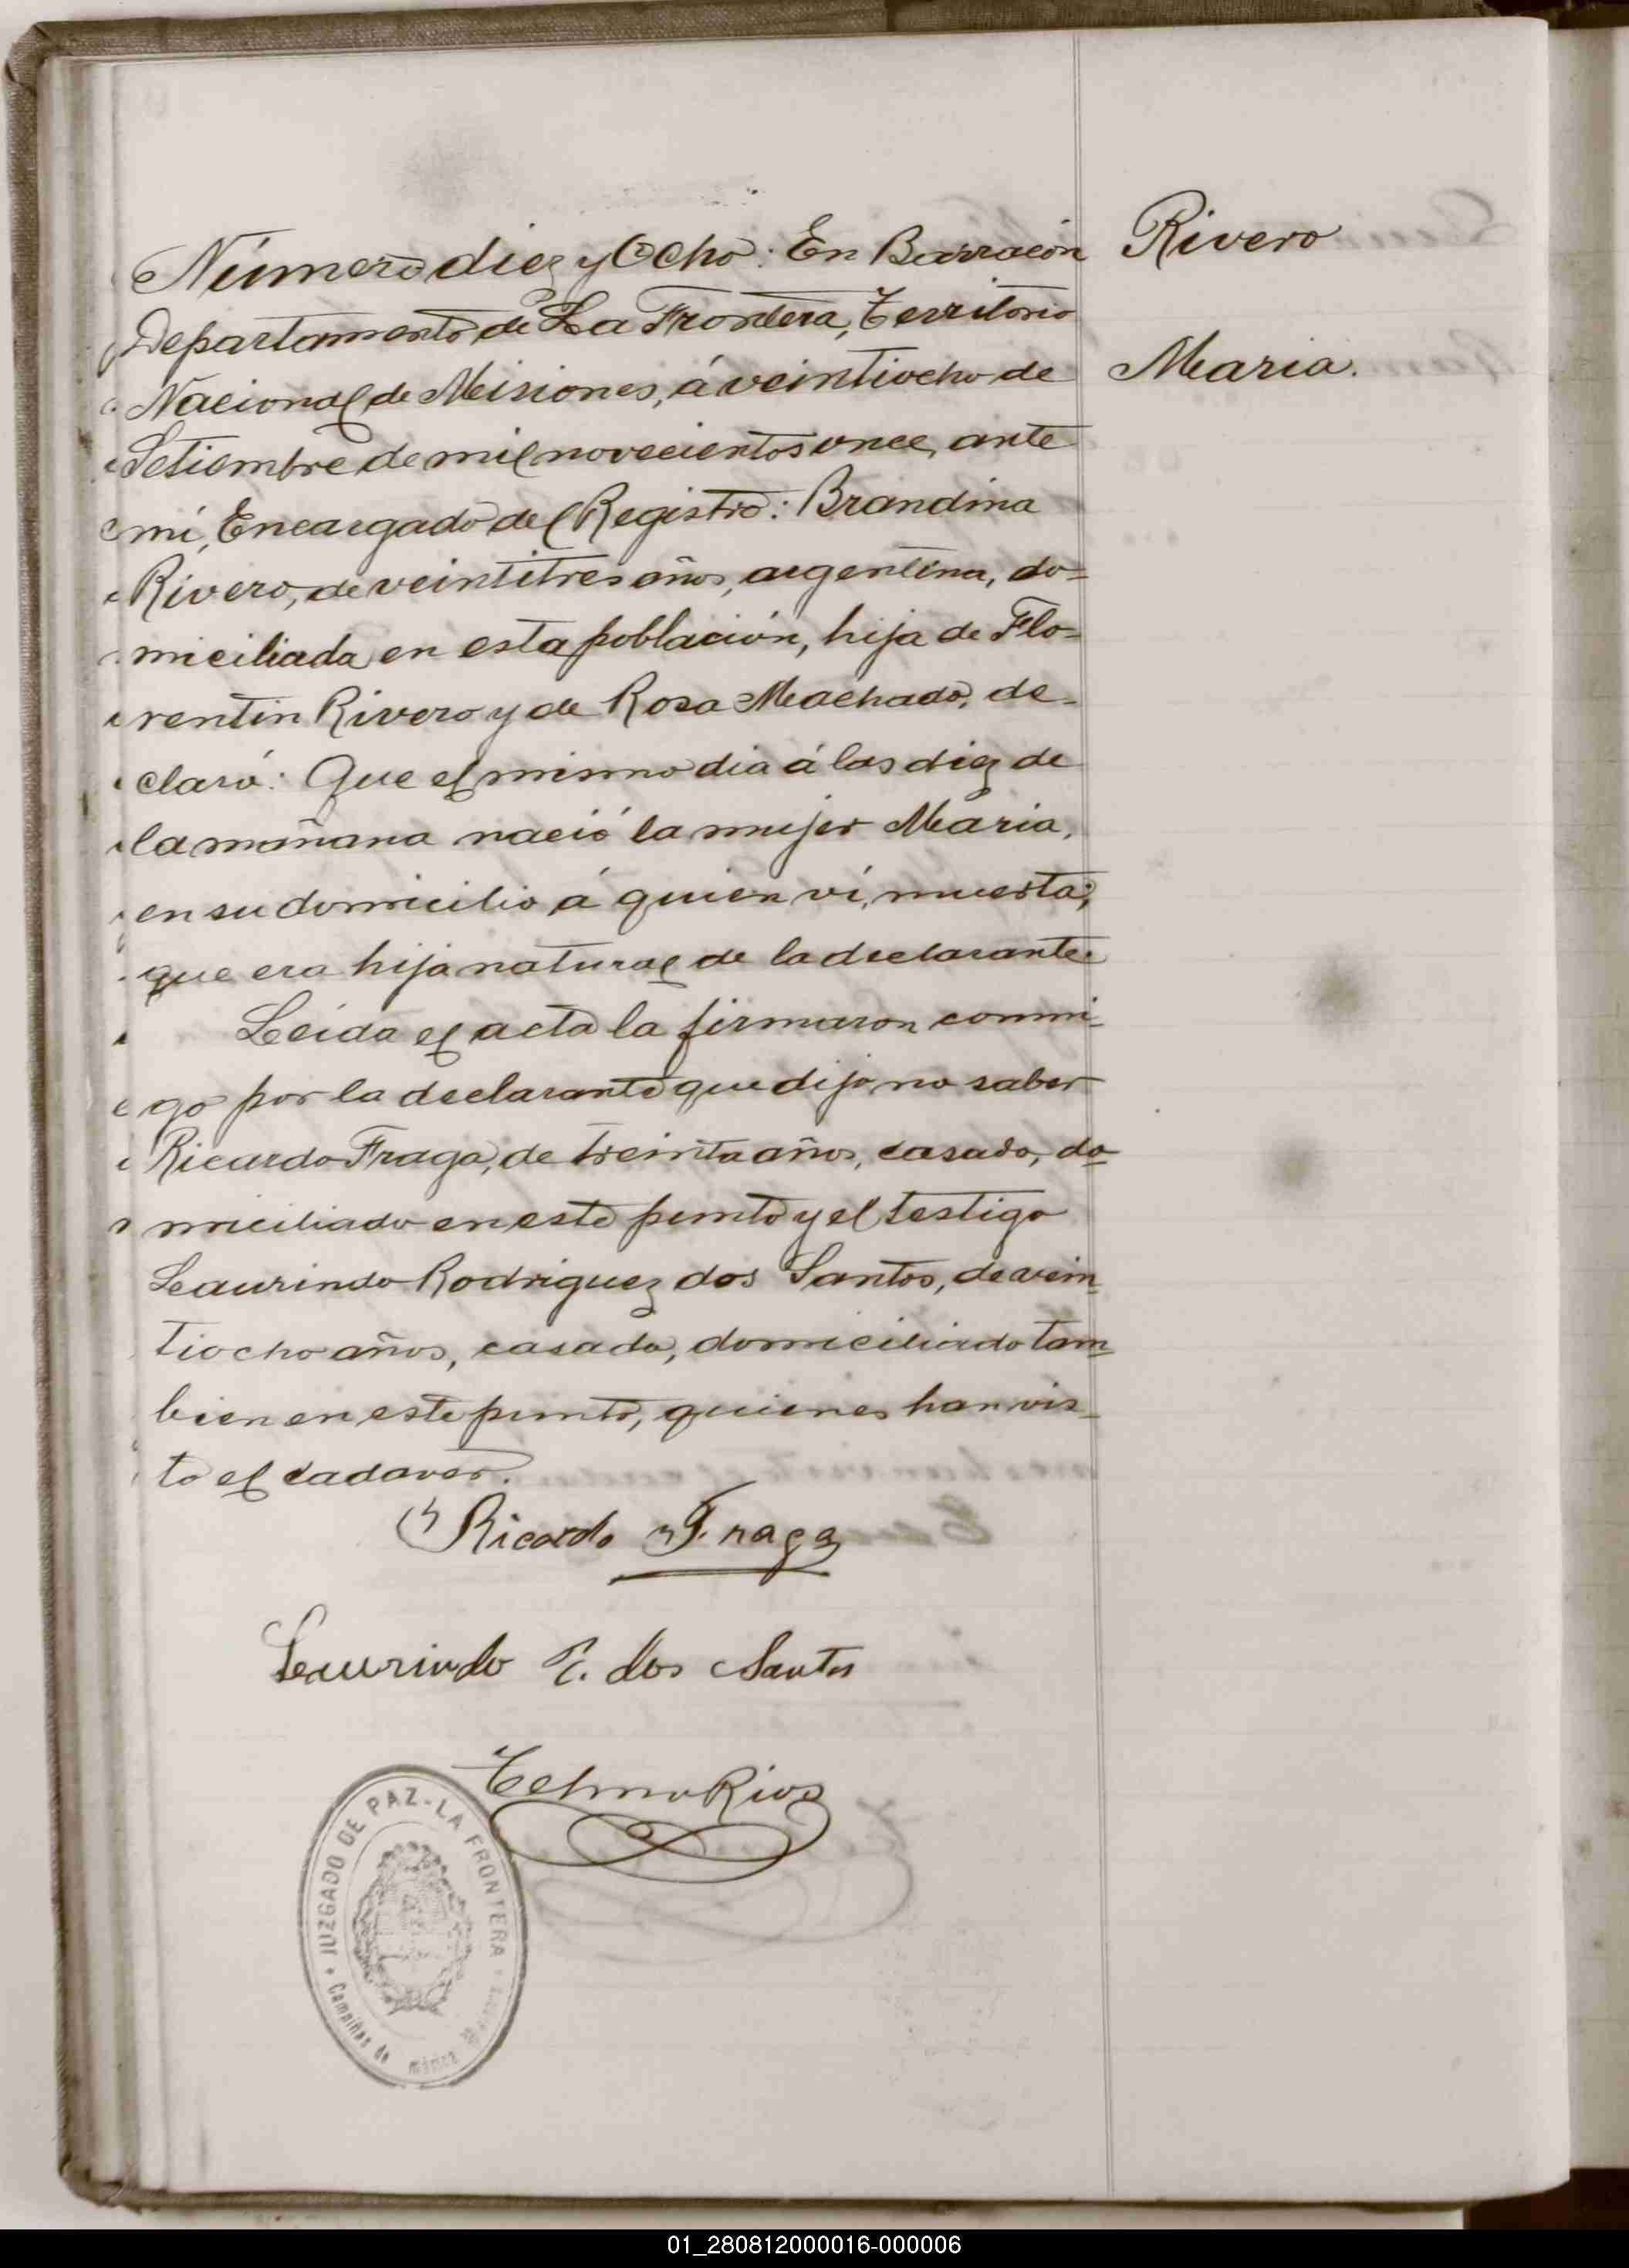 Número diez y Ocho: En Barracón
Departamento de La Frontera, Territorio
Nacional de Misiones, á veintiocho de
Setiembre de mil novecientos once, ante
mí, Encargado del Registro: Brandina
Rivero, de veintitres años, argentina, do=
miciliada en esta población, hija de Flo=
rentin Rivero y de Rosa Machado, de-
claró: Que el mismo dia á las diez de
la mañana nació la mujer Maria,
en su domicilio á quien ví, muerta;
que era hija natural de la declarante.
Leida el acta la firmaron conmi-
go por la declarante que dijo no saber
Ricardo Fraga, de treinta años, casado, do-
miciliado en este punto y el testigo
Laurindo Rodriguez dos Santos, de vein-
tiocho años, casado, domiciliado tam-
bien en este punto, quienes han vis-
to el cadaver.
Ricardo Fraga
Laurindo R. dos Santos
Telmo Rios
Rivero
Maria.
JUZGADO DE PAZ - LA FRONTERA
Campiñas de
01_280812000016-000006